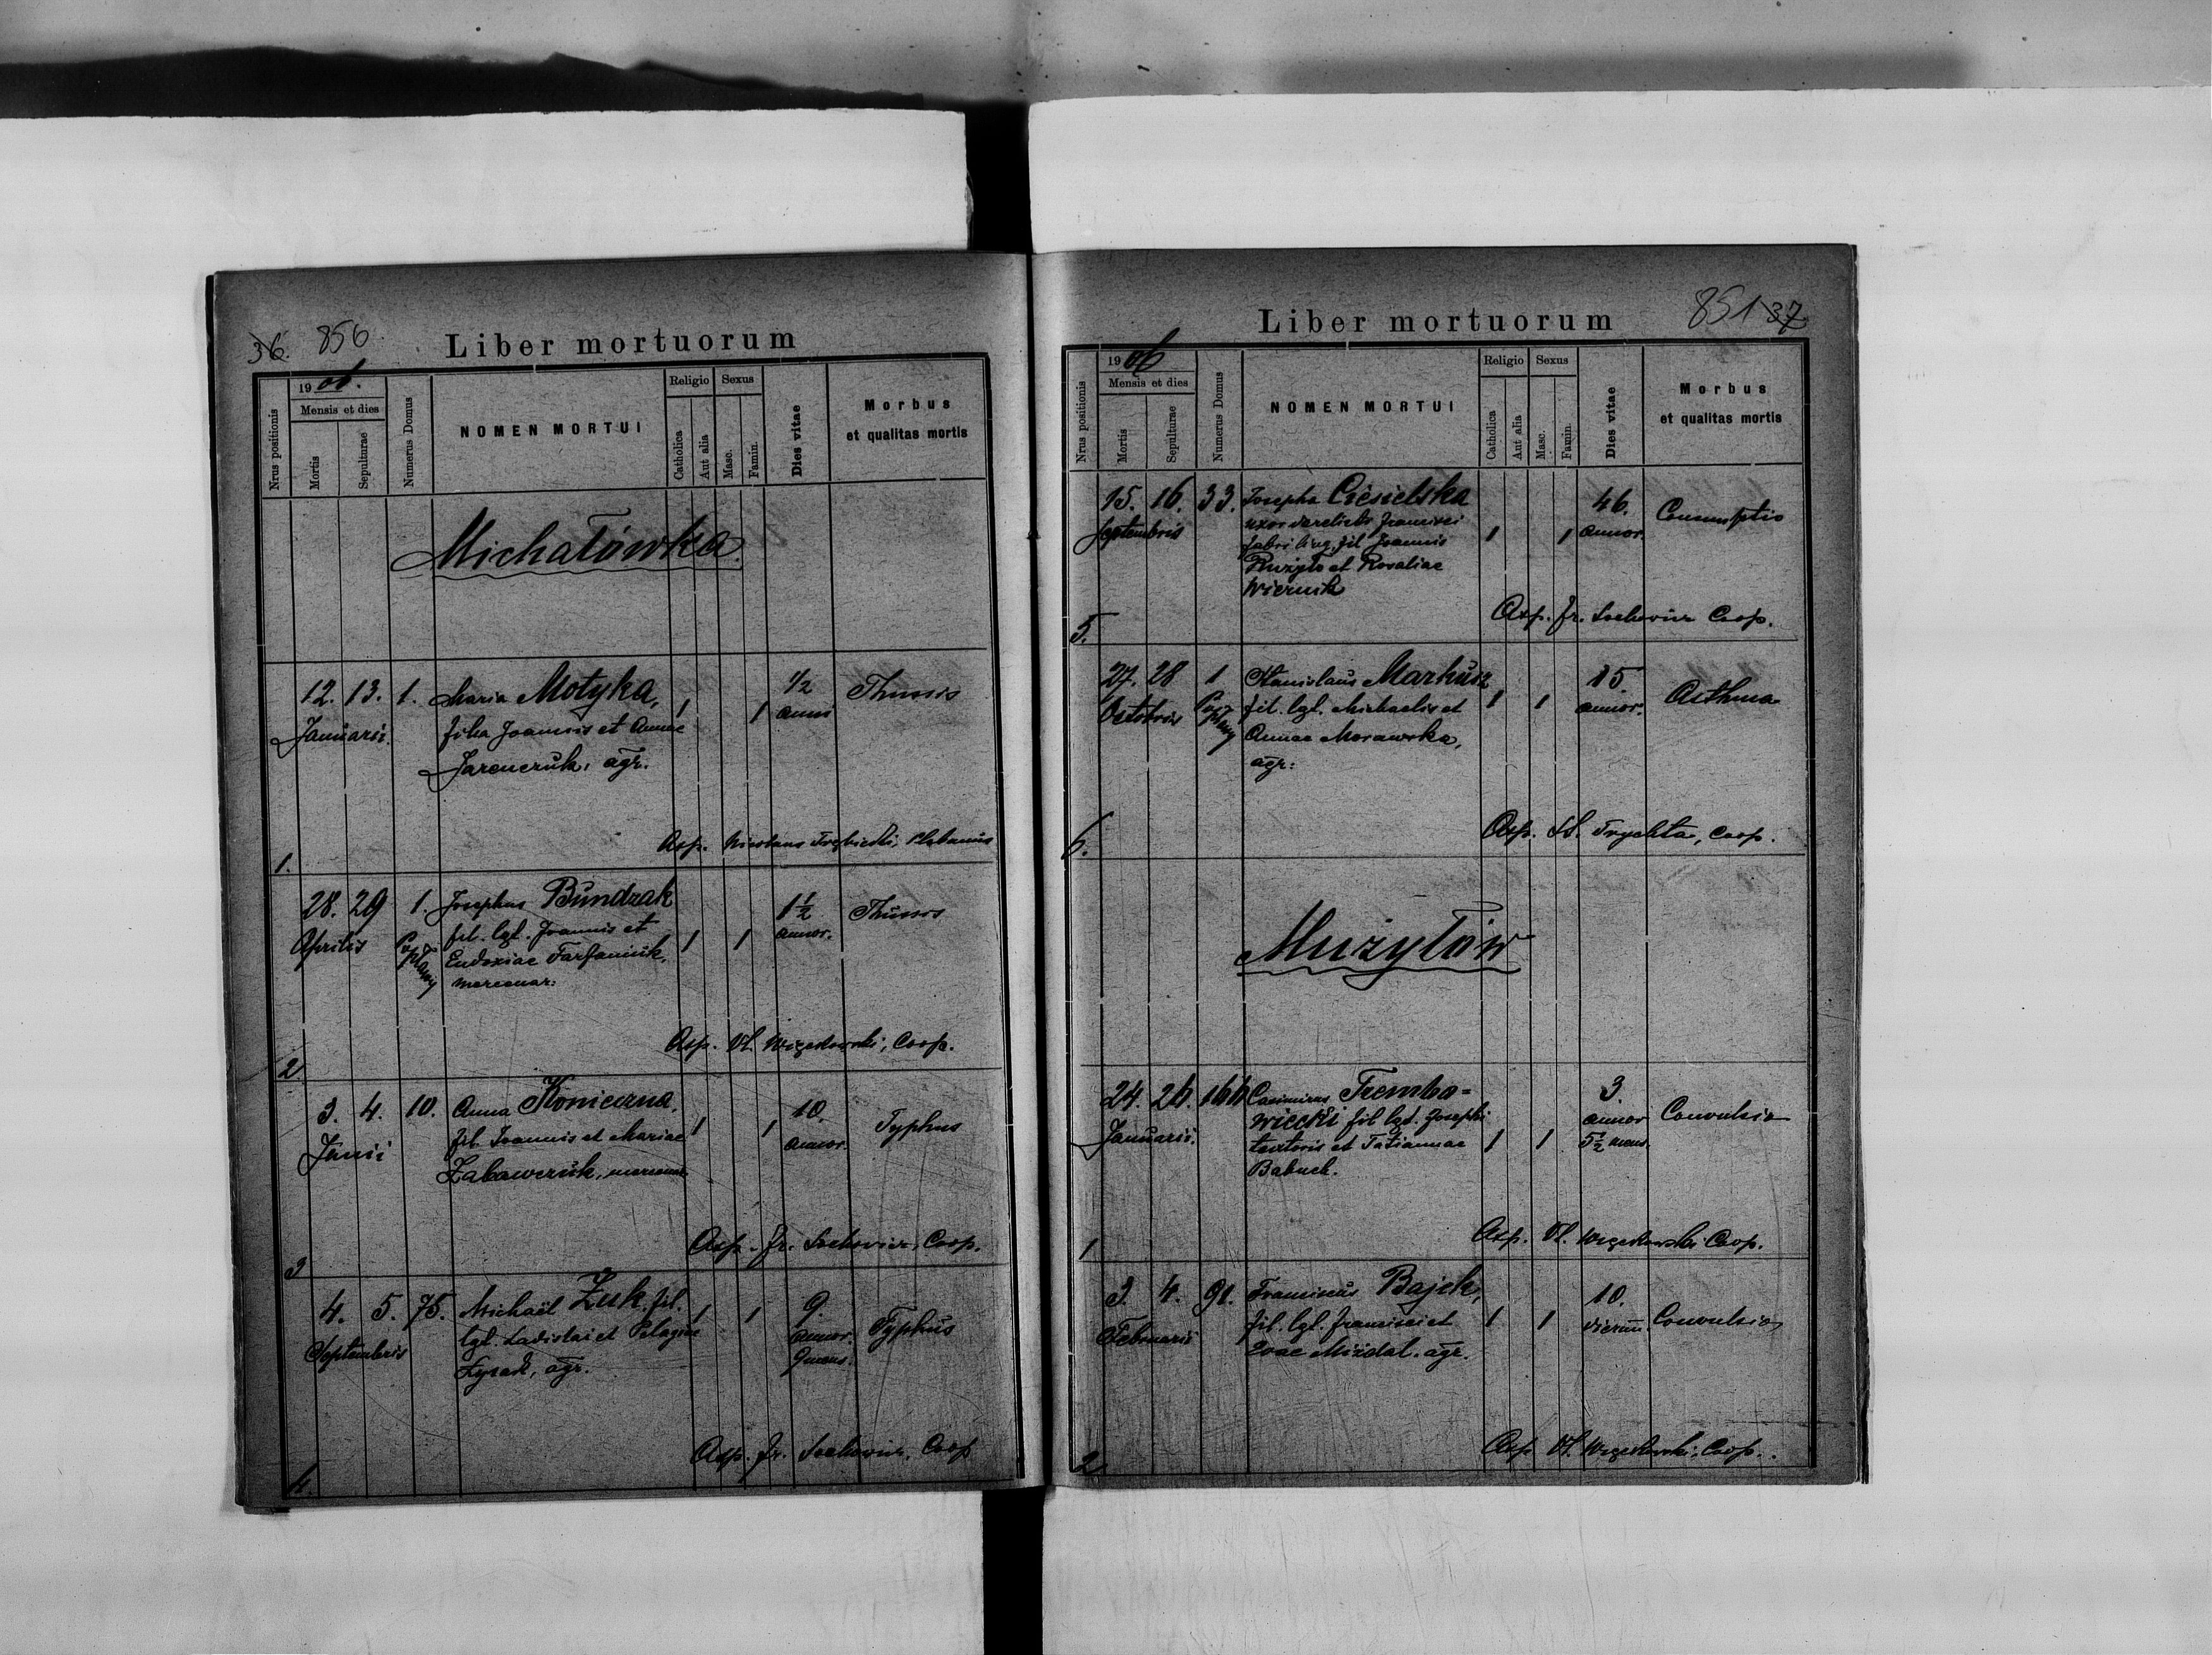 36. 856.
Liber mortuorum
1906.
Nrus positionis
Mensis et dies
Mortis
Sepulturae
Numerus Domus
NOMEN MORTUI
Religio
Catholica
Aut alia
Sexus
Masc.
Famin.
Dies vitae
Morbus
et qualitas mortis
Michałówka
12. 13. 1. Maria Motyka, 1 1 1/2 Thussis
Januarii. filia Joannis et Annae anni
Jarenczuk, agr.
1.
Asp. Nicolaus Plebanus
28. 29 1. Josephus Bundzak 1 1 1 1/2 Thussis
Aprilis fil. lgt. Joannis et annor.
Eudoxiae Farfaniuk,
mercenar:
2
Asp. Vl. Coop.
3. 4. 10. Anna Konieczna, 1 1 10. Typhus
Junii fil. Joannis et Mariae annor.
Zabawczuk,
3
Asp. Fr. Coop.
4. 5. 75. Michaël Żuk, fil. 1 1 9. Typhus
Septembris lgt. Ladislai et Pelagiae annor.
Łysak, agr. 9 mens.
4.
Asp. Fr. Coop
Liber mortuorum
851 37
1906
Nrus positionis
Mensis et dies
Mortis
Sepulturae
Numerus Domus
NOMEN MORTUI
Religio
Catholica
Aut alia
Sexus
Masc.
Famin.
Dies vitae
Morbus
et qualitas mortis
15. 16. 33. Josepha Ciesielska 46. Consumptio
Septembris uxor derelicta Francisci 1 1 annor.
fabri ling. fil Joannis
et Rosaliae
Wiernik
5.
Asp. Fr. Coop.
27. 28 1 Stanislaus Markusz 1 1 15. Asthma
Octobris fil. lgt. Michaelis et annor.
Annae Morawska,
agr:
6.
Asp. St. Trychta, Coop.
Mużyłów
24. 26. 164 Casimirus Trembo- 3. Convulsio
Januarii. wiecki fil lgt. Josephi annor
textoris et Tatiannae 1 1 5 1/2 mens.
1
Asp. Vl. Coop.
3. 4. 91. Franciscus Bajek, 1 1 10. Convulsio
Februarii fil. lgt. Francisci et dierum.
Evae Miżdal. agr.
2
Asp Vl. Coop.